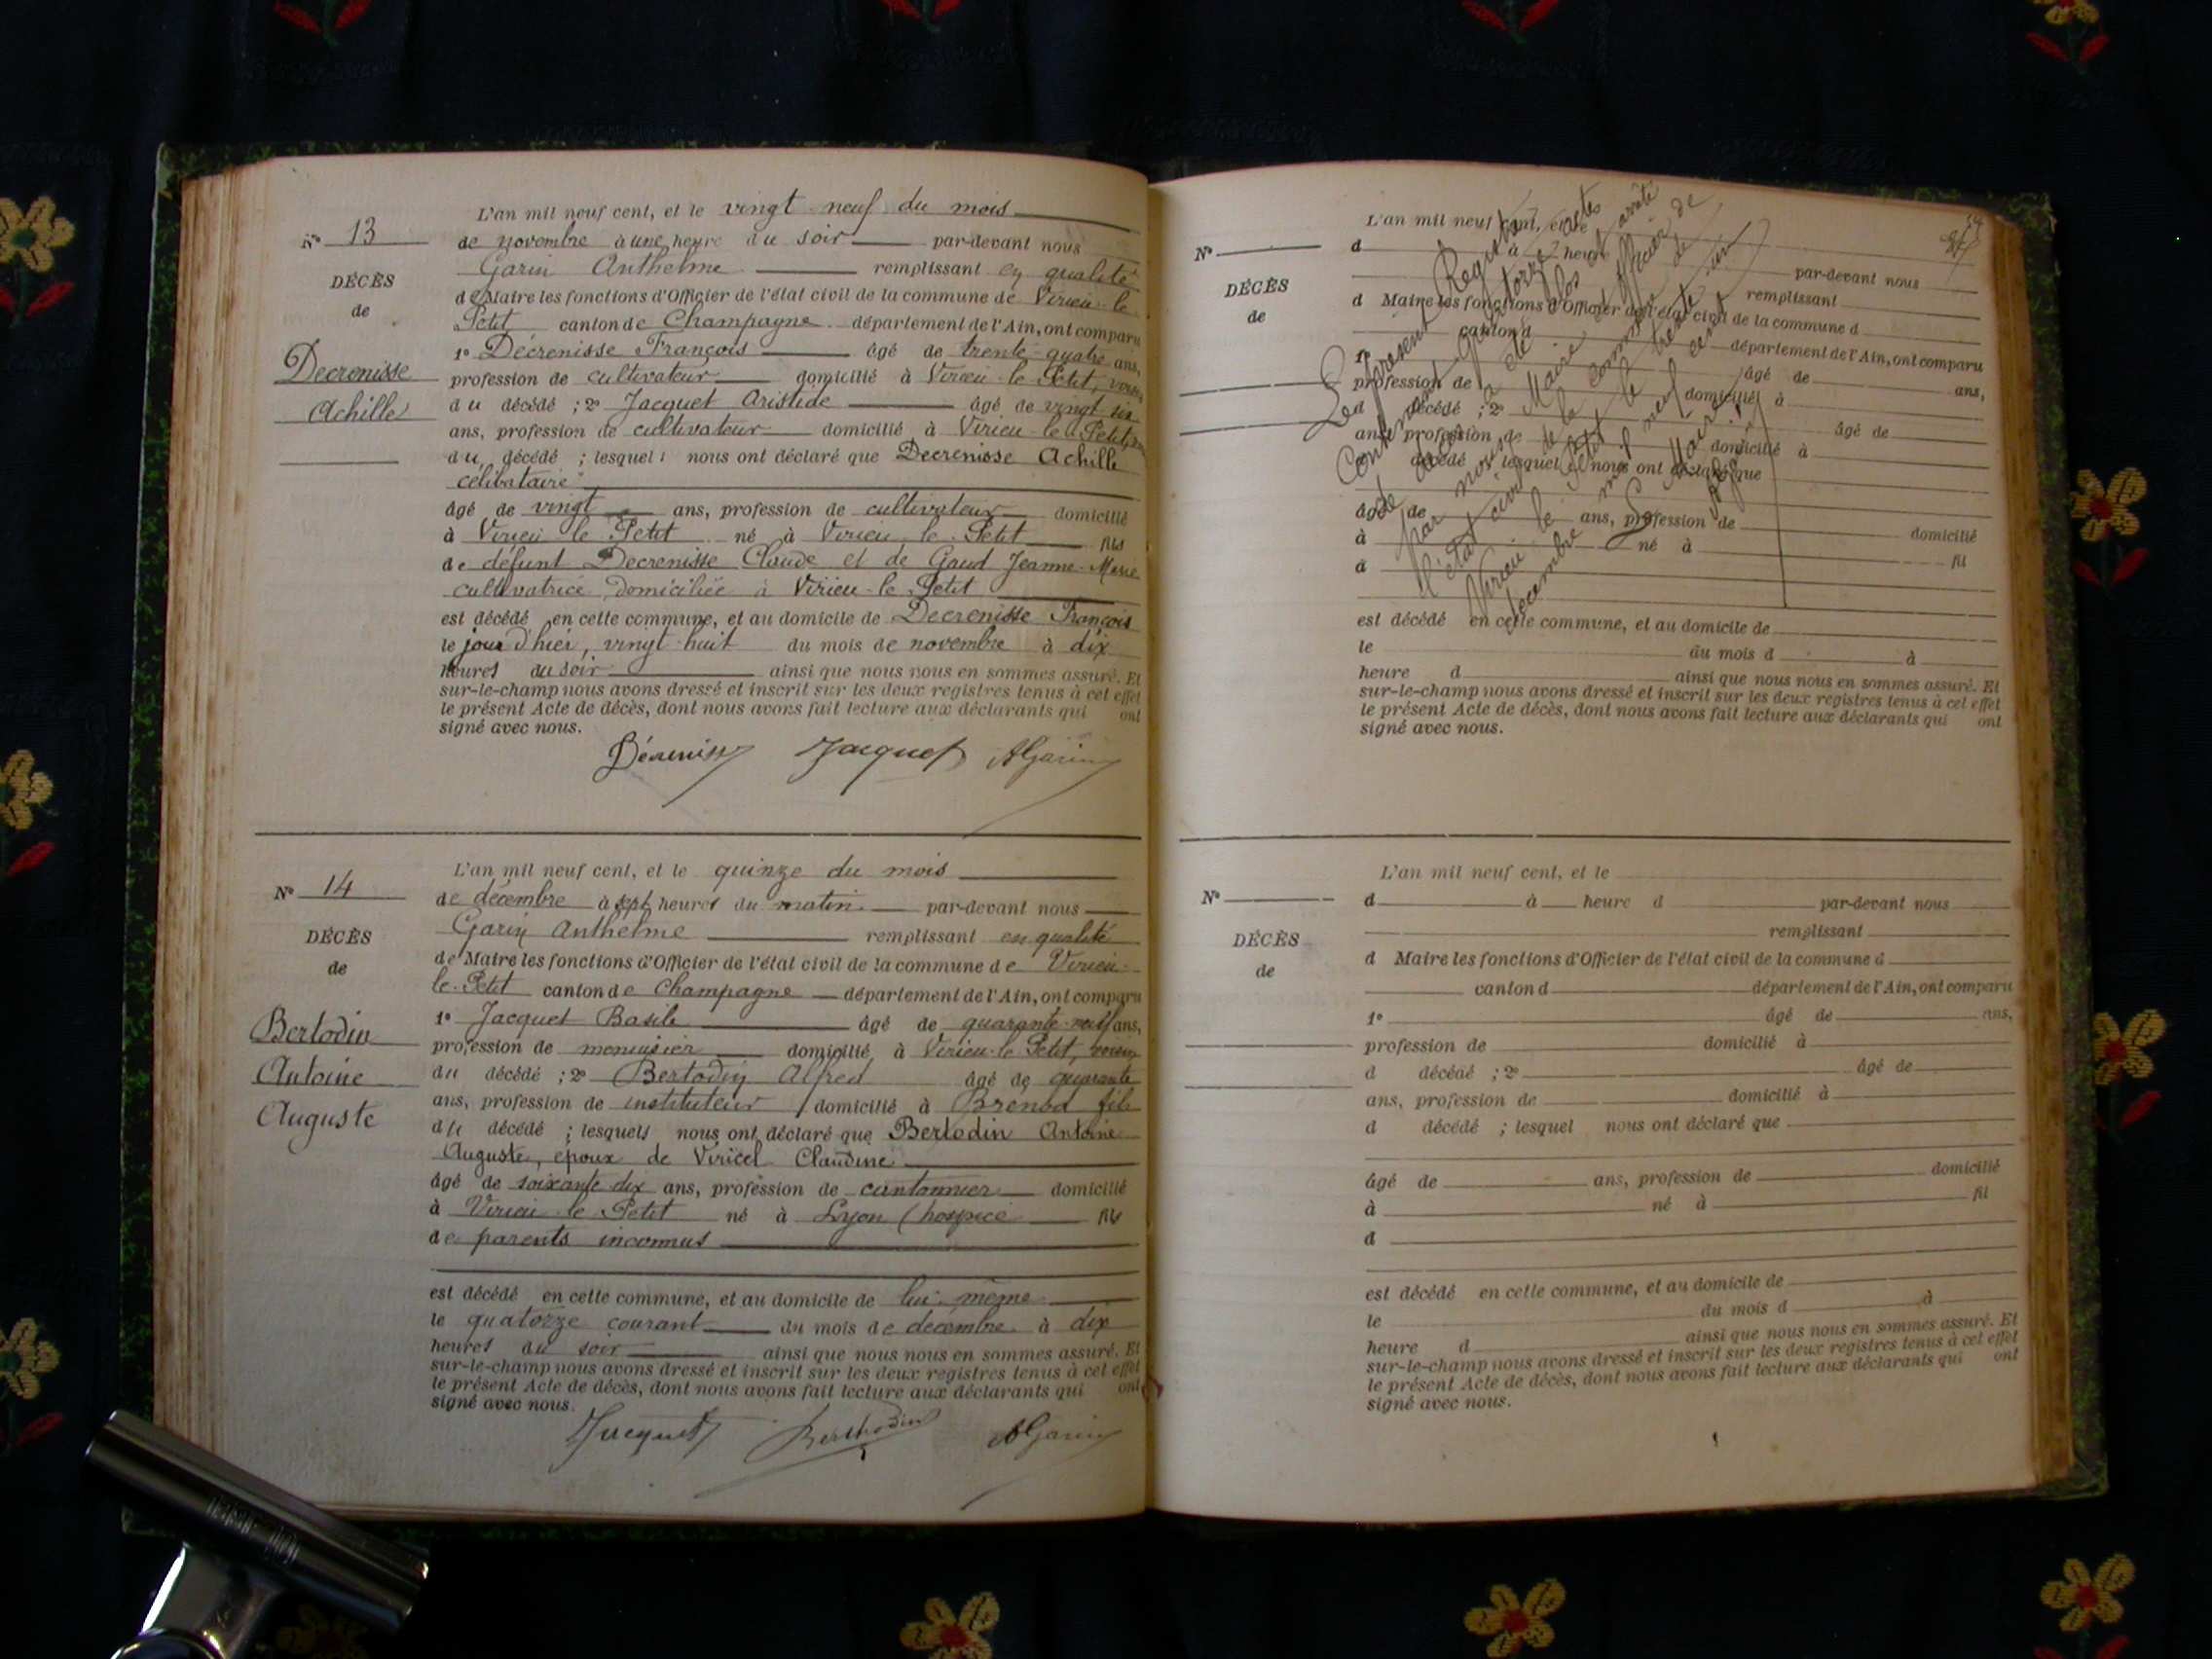 N° 13
DÉCÈS
de
Decrenisse
Achille
L'an mil neuf cent, et le vingt-neuf du mois
de novembre à une heure du soir par-devant nous
Garin Anthelme remplissant en qualité
de Maire les fonctions d'Officier de l'état civil de la commune de Virieu-le
Petit canton de Champagne département de l'Ain, ont comparu
1° Décrenisse François âgé de trente-quatre ans,
profession de cultivateur domicilié à Virieu-le-Petit, voisin
du décédé ; 2° Jacquet Aristide âgé de vingt six
ans, profession de cultivateur domicilié à Virieu-le-Petit,
du décédé ; lesquels nous ont déclaré que Decrenisse Achille
célibataire
âgé de vingt ans, profession de cultivateur domicilié
à Virieu le Petit né à Virieu le Petit fils
de défunt Decrenisse Claude et de Gaud Jeanne-Marie
cultivatrice domiciliée à Virieu-le-Petit
est décédé en cette commune, et au domicile de Decrenisse François
le jour d'hier, vingt-huit du mois de novembre à dix
heures du soir ainsi que nous nous en sommes assuré. Et
sur-le-champ nous avons dressé et inscrit sur les deux registres tenus à cet effet
le présent Acte de décès, dont nous avons fait lecture aux déclarants qui ont
signé avec nous.
Décreniss Jacquet AGarin
N° 14
DÉCÈS
de
Bertodin
Antoine
Auguste
L'an mil neuf cent, et le quinze du mois
de décembre à sept heures du matin par-devant nous
Garin Anthelme remplissant en qualité
de Maire les fonctions d'Officier de l'état civil de la commune de Virieu-
le-Petit canton de Champagne département de l'Ain, ont comparu
1° Jacquet Basile âgé de quarante-neuf ans,
profession de menuisier domicilié à Virieu-le-Petit, voisin
du décédé ; 2° Bertodin Alfred âgé de quarante
ans, profession de instituteur domicilié à Brenod fils
du décédé ; lesquels nous ont déclaré que Bertodin Antoine
Auguste, époux de Viricel Claudine
âgé de soixante dix ans, profession de cantonnier domicilié
à Virieu-le-Petit né à Lyon (hospice fils
de parents inconnus
est décédé en cette commune, et au domicile de lui-même
le quatorze courant du mois de décembre à dix
heures du soir ainsi que nous nous en sommes assuré. Et
sur-le-champ nous avons dressé et inscrit sur les deux registres tenus à cet effet
le présent Acte de décès, dont nous avons fait lecture aux déclarants qui ont
signé avec nous.
Jacquet Berthodin AGarin
N°
DÉCÈS
de
L'an mil neuf cent, et le
d à heure
par-devant nous
remplissant
d Maire les fonctions d'Officier de l'état civil de la commune d
canton d département de l'Ain, ont comparu
1° âgé de ans,
profession de domicilié à
d décédé ; 2° âgé de
ans, profession de domicilié à
d décédé ; lesquel nous ont déclaré que
âgé de ans, profession de domicilié
à né à fil
d
est décédé en cette commune, et au domicile de
le du mois d à
heure d ainsi que nous nous en sommes assuré. Et
sur-le-champ nous avons dressé et inscrit sur les deux registres tenus à cet effet
le présent Acte de décès, dont nous avons fait lecture aux déclarants qui ont
signé avec nous.
Le présent Registre
Contenant quatorze actes
de décès a été clos et arrêté
par nous Maire officier de
l'état civil de la commune de
Virieu le Petit le trente un
décembre mil neuf cent
Le Maire
AGarin
N°
DÉCÈS
de
L'an mil neuf cent, et le
d à heure d par-devant nous
remplissant
d Maire les fonctions d'Officier de l'état civil de la commune d
canton d département de l'Ain, ont comparu
1° âgé de ans,
profession de domicilié à
d décédé ; 2° âgé de
ans, profession de domicilié à
d décédé ; lesquel nous ont déclaré que
âgé de ans, profession de domicilié
à né à fil
d
est décédé en cette commune, et au domicile de
le du mois d à
heure d ainsi que nous nous en sommes assuré. Et
sur-le-champ nous avons dressé et inscrit sur les deux registres tenus à cet effet
le présent Acte de décès, dont nous avons fait lecture aux déclarants qui ont
signé avec nous.